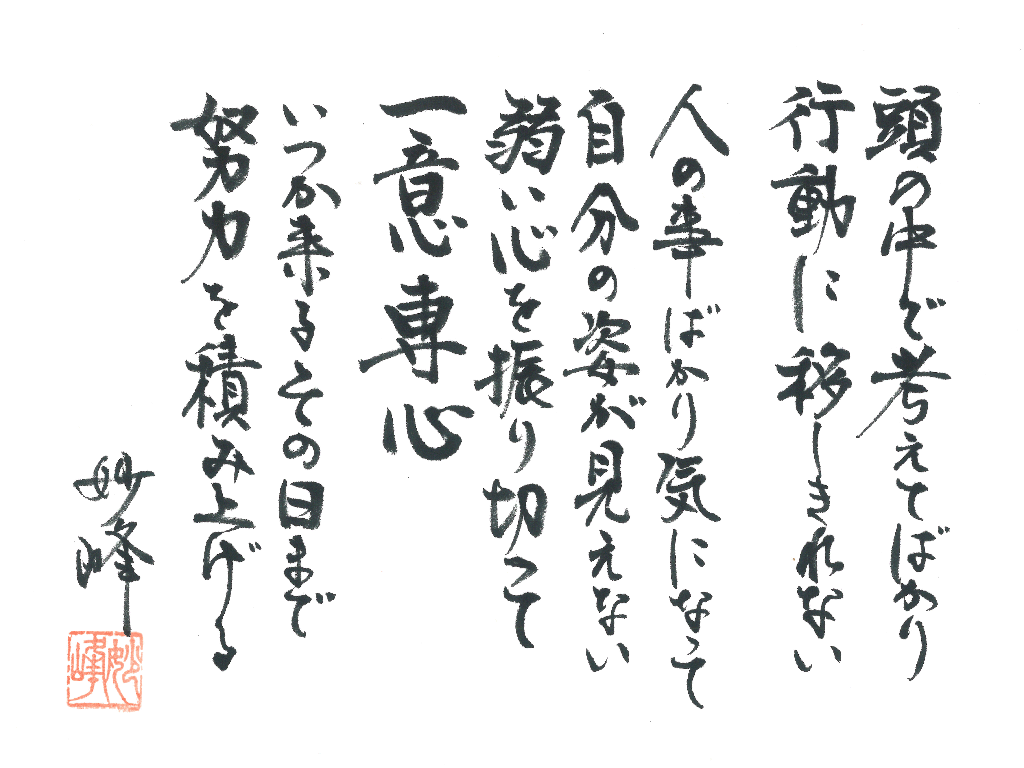 頭の中で考えてばかり
行動に移しきれない
人の事ばかり気になって
自分の姿が見えない
弱い心を振り切って
一意専心
いつか来るその日まで
努力を積み上げる
妙峰
妙峰